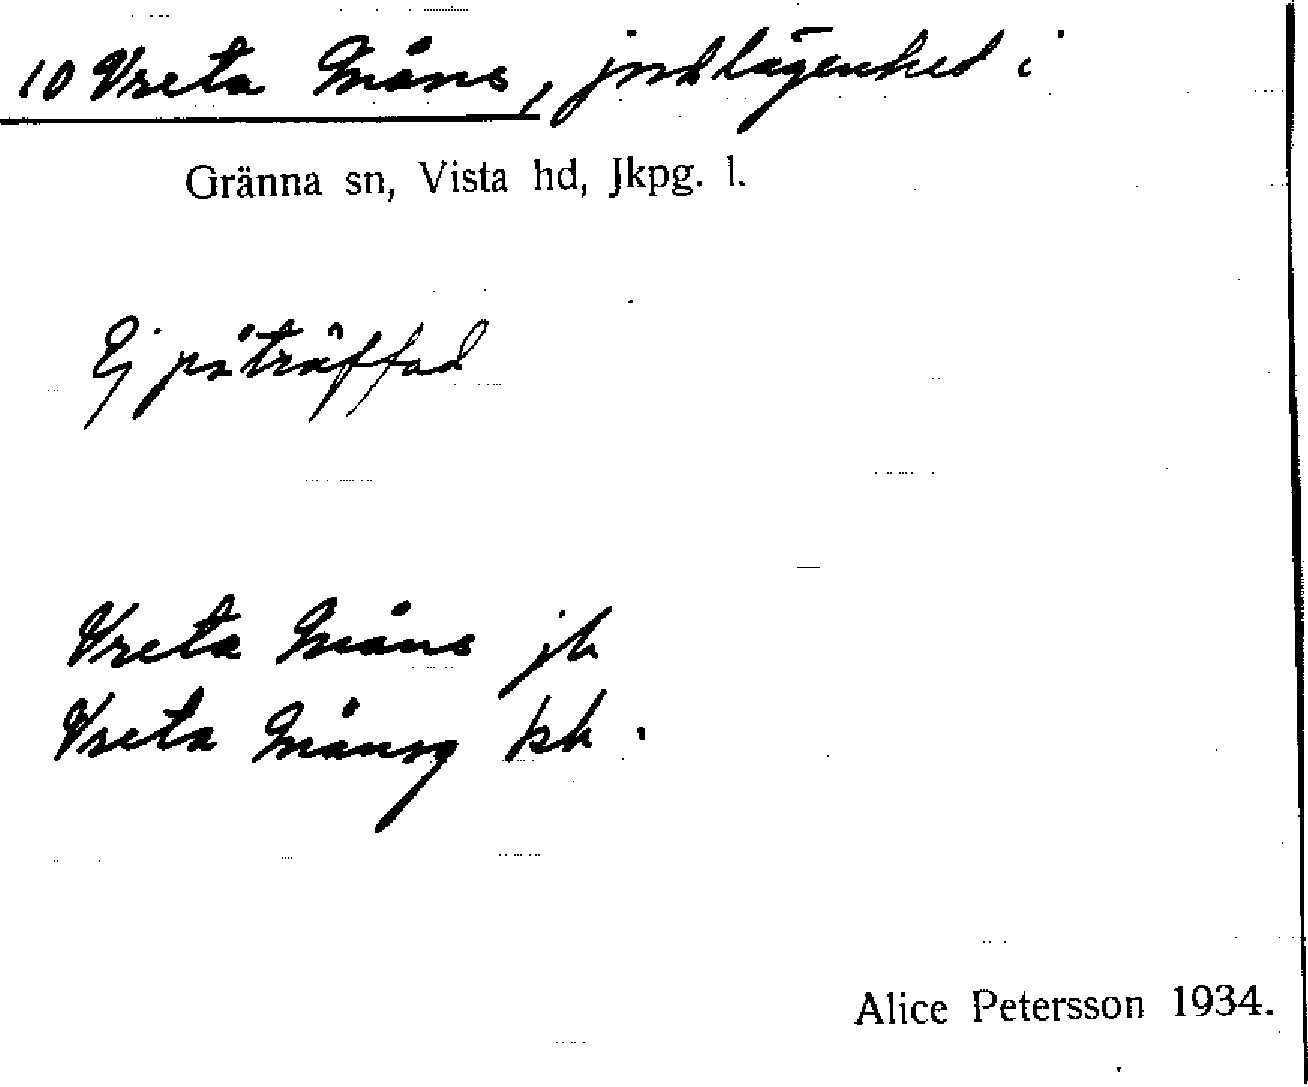 10 Vreta Måns, jordlägenhet i
Gränna sn, Vista hd, Jkpg. l.
Ej påträffad
Vreta Måns jb
Vreta Måns kb.
Alice Petersson 1934.